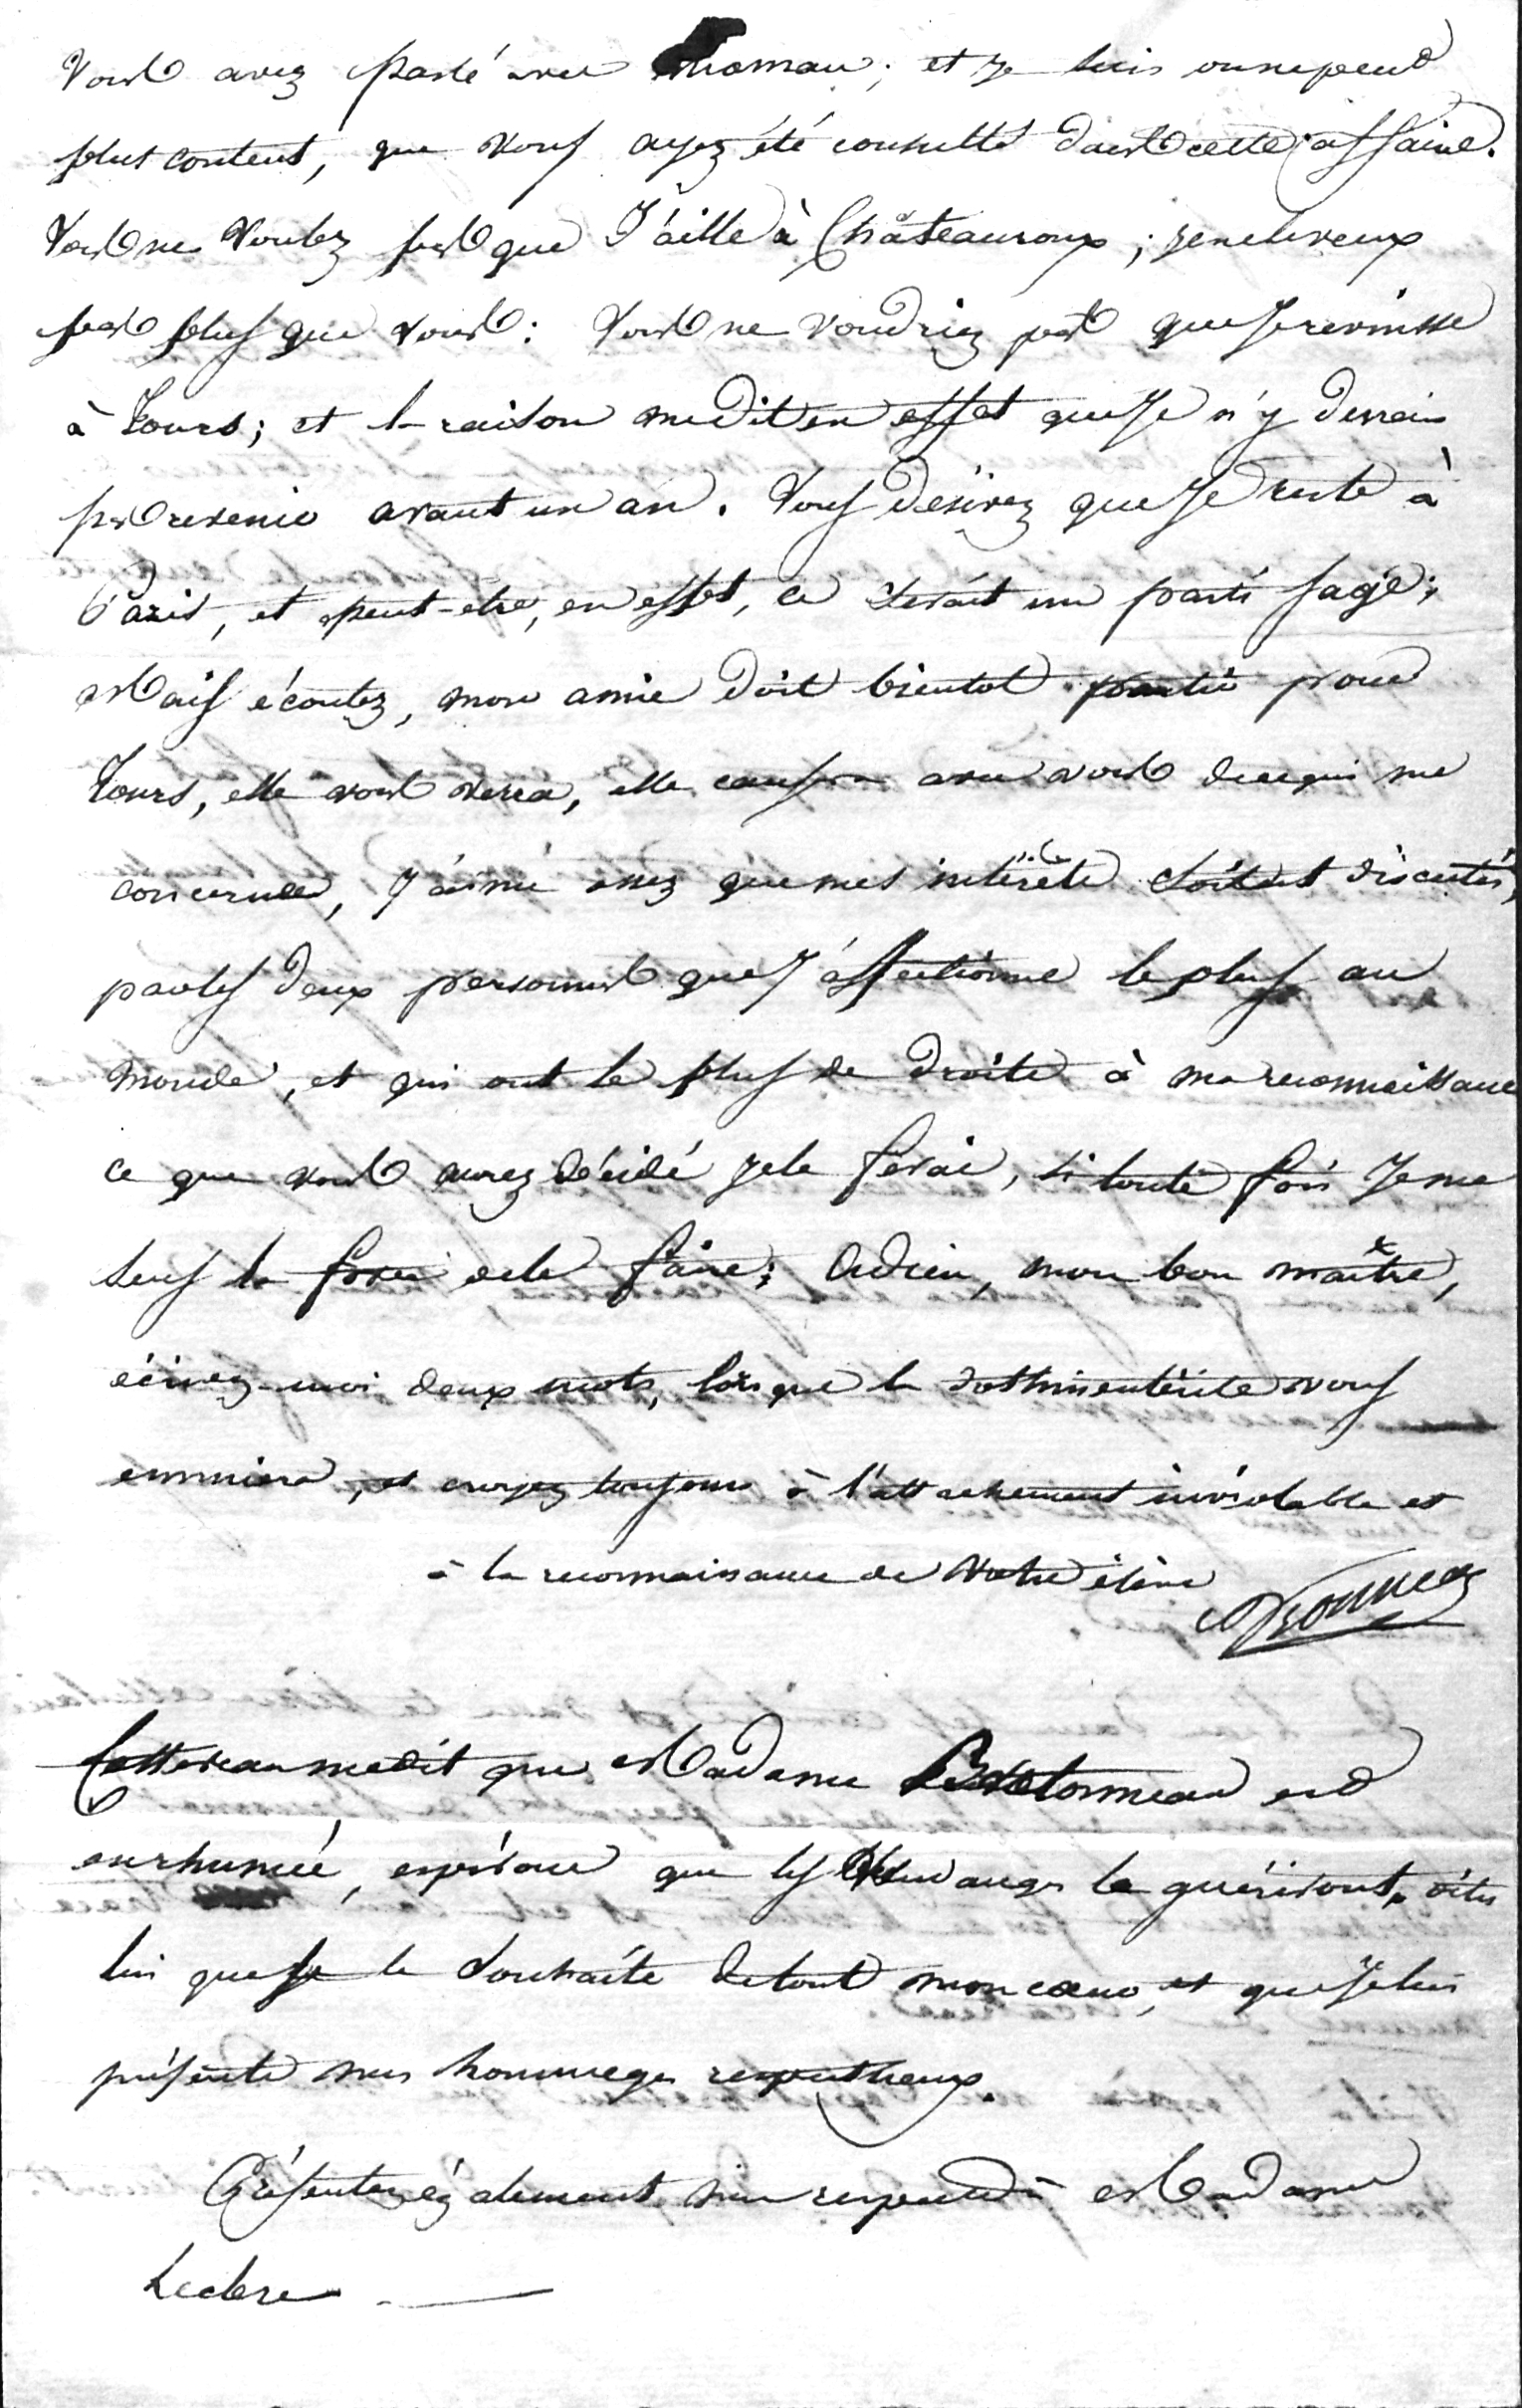 vous avez parlé avec Thomas ; et je suis on ne peut
plus content, que vous ayez été consulté dans cette affaire.
Vous ne voulez pas que J'aille à Châteauroux ; je ne le veux
pas plus que vous : vous ne voudriez pas que Je revinsse
à Tours ; et la raison me dit en effet que Je n'y devrais
pas revenir avant un an. Vous désirez que Je reste à
Paris, et peut-etre, en effet, ce serait un parti sage ;
Mais écoutez, mon amie doit bientot partir pour
Tours, elle vous verra, elle causera avec vous de ce qui me
concerne, J'aime assez que mes intérêts soient discutés,
par les deux personnes que J'affectionne le plus au
monde, et qui ont le plus de droits à ma reconnaissance
ce que vous aurez décidé je le ferai, si toute fois Je me
sens la force de le faire ; Adieu, mon bon maître,
écrivez-moi deux mots, lorsque la dothinentérite vous
ennuiera, et croyez toujours à l'attachement inviolable et
à la reconnaissance de votre élève
Trousseau
Cottereau me dit que Madame Bretonneau est
enrhumée, espérons que les vendanges la guériront, dites
lui que Je le souhaite de tout mon cœur, et que Je lui
présente mes hommages respectueux.
Présentez également mon respect à Madame
Leclerc